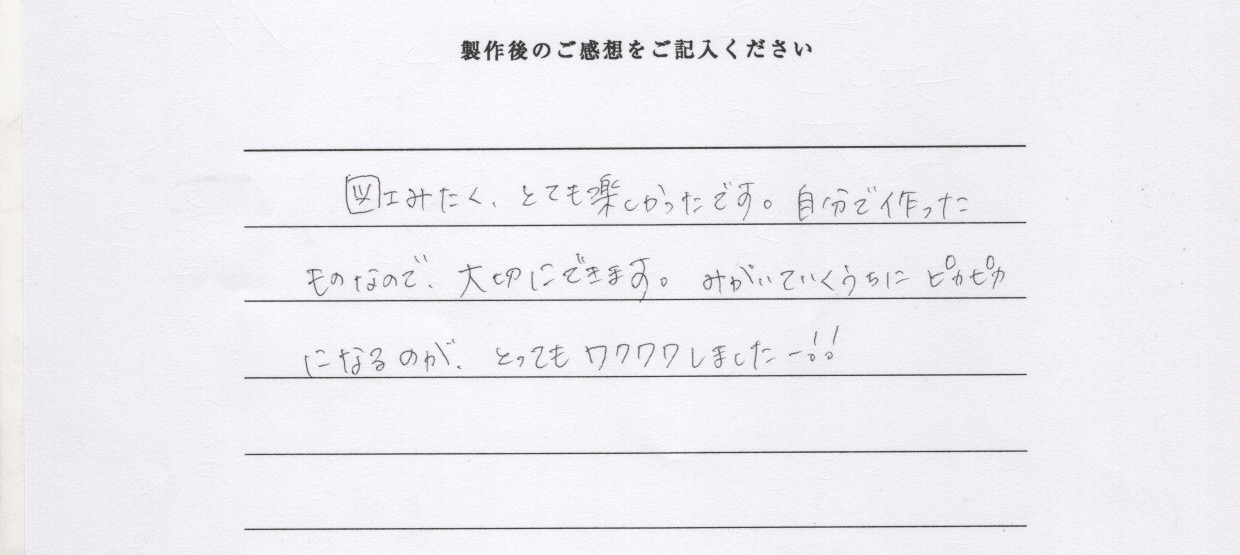 製作後のご感想をご記入ください
図工みたく、とても楽しかったです。自分で作った
ものなので、大切にできます。みがいていくうちにピカピカ
になるのが、とってもワクワクしましたー!!